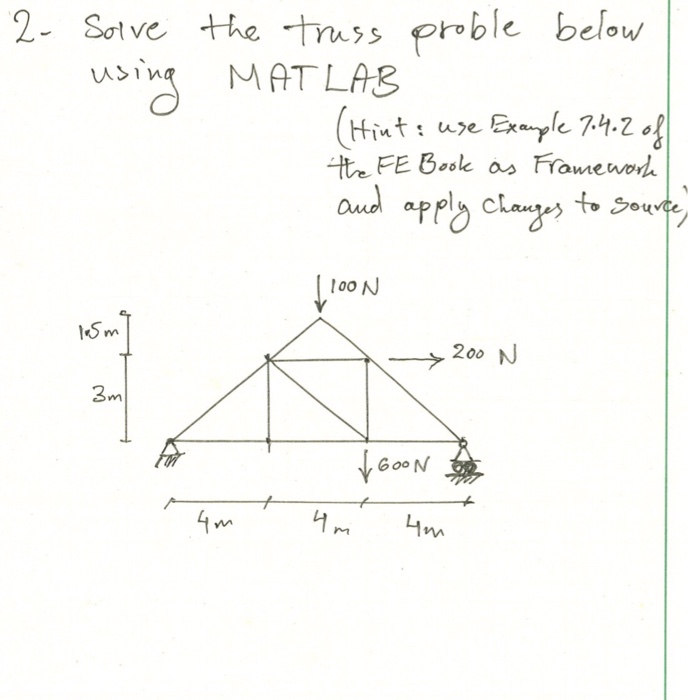 2- Solve the truss proble below
using MATLAB
(Hint: use Example 7.4.2 of
the FE Book as Framework
and apply changes to source)
100 N
1.5m
200 N
3m
600N
4m
4m
4m